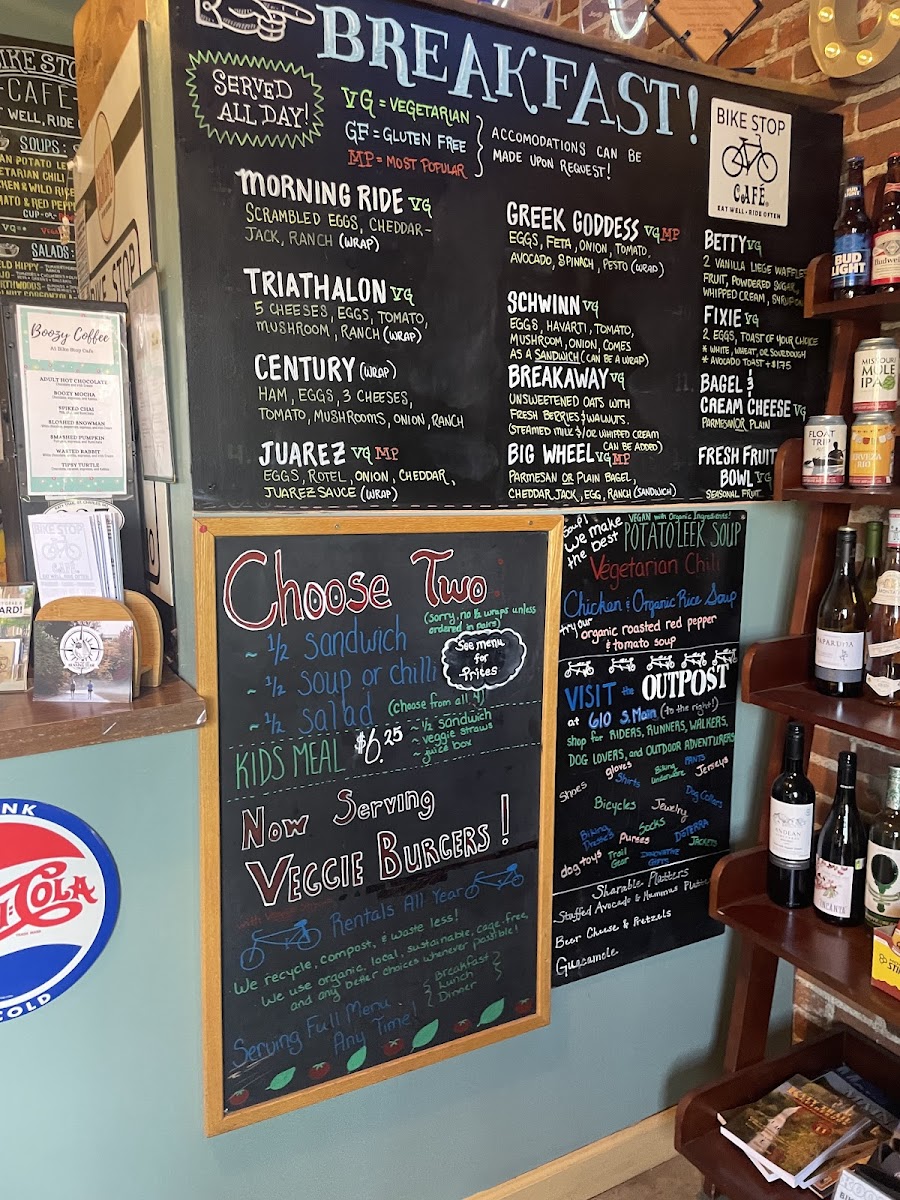 BREAKFAST!
SERVED
ALL DAY!
VG = VEGETARIAN
GF = GLUTEN FREE
MP = MOST POPULAR
ACCOMODATIONS CAN BE
MADE UPON REQUEST!
BIKE STOP
CAFÉ
EAT WELL • RIDE OFTEN
MORNING RIDE VG
SCRAMBLED EGGS, CHEDDAR-
JACK, RANCH (WRAP)
TRIATHALON VG
5 CHEESES, EGGS, TOMATO,
MUSHROOM, RANCH (WRAP)
CENTURY (WRAP)
HAM, EGGS, 3 CHEESES,
TOMATO, MUSHROOMS, ONION, RANCH
JUAREZ VG MP
EGGS, ROTEL, ONION, CHEDDAR,
JUAREZ SAUCE (WRAP)
GREEK GODDESS VG MP
EGGS, FETA, ONION, TOMATO,
AVOCADO, SPINACH, PESTO (WRAP)
SCHWINN VG
EGGS, HAVARTI, TOMATO,
MUSHROOM, ONION, COMES
AS A SANDWICH (CAN BE A WRAP)
BREAKAWAY VG
UNSWEETENED OATS WITH
FRESH BERRIES & WALNUTS.
(STEAMED MILK &/OR WHIPPED CREAM
CAN BE ADDED)
BIG WHEEL VG MP
PARMESAN OR PLAIN BAGEL,
CHEDDAR JACK, EGG, RANCH (SANDWICH)
BETTY VG
2 VANILLA LIEGE WAFFLES
FRUIT, POWDERED SUGAR,
WHIPPED CREAM, SYRUP
FIXIE VG
2 EGGS, TOAST OF YOUR CHOICE
* WHITE, WHEAT, OR SOURDOUGH
* AVOCADO TOAST + $1.75
BAGEL &
CREAM CHEESE VG
PARMESAN OR PLAIN
FRESH FRUIT
BOWL VG
SEASONAL FRUIT
BIKE STOP
CAFÉ
SOUPS:
SALADS:
BIKE STOP
Boozy Coffee
At Bike Stop Cafe
ADULT HOT CHOCOLATE
BOOZY MOCHA
SPIKED CHAI
SLOSHED SNOWMAN
SMASHED PUMPKIN
WASTED RABBIT
TIPSY TURTLE
BIKE STOP
CAFÉ
Choose Two
(sorry, no ½ wraps unless
ordered in pairs)
~ ½ sandwich
~ ½ soup or chili
~ ½ salad (choose from all 4)
See menu
for
prices
KIDS MEAL $6.25
~ ½ sandwich
~ veggie straws
~ juice box
Now Serving
VEGGIE BURGERS!
Rentals All Year
We recycle, compost, & waste less!
We use organic, local, sustainable, cage-free,
and any better choices whenever possible!
Serving Full Menu
Any Time!
Breakfast
Lunch
Dinner
VEGAN with Organic Ingredients!
Soup!
We make
the best
POTATO LEEK SOUP
Vegetarian Chili
Chicken & Organic Rice Soup
try our
organic roasted red pepper
& tomato soup
VISIT the OUTPOST
at 610 S. Main (to the right!)
shop for RIDERS, RUNNERS, WALKERS,
DOG LOVERS, and OUTDOOR ADVENTURERS
Shoes
gloves
Shirts
Biking
Underwear
PANTS
Jerseys
Bicycles
Jewelry
Dog Collars
Biking
Dresses
Purses
Socks
DOTERRA
JACKETS
dog toys
Trail
Gear
GIFTS
Sharable Platters
Stuffed Avocado & Hummus Platter
Beer Cheese & Pretzels
Guacamole
BUD
LIGHT
MISSOURI
MULE
IPA
FLOAT
TRIP
CERVEZA
RIO
COLA
COLD